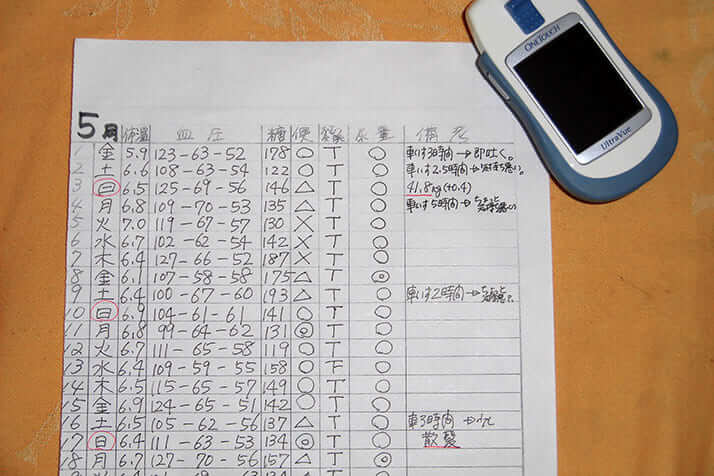 ONETOUCH
UltraVue
5月 体温 血圧 糖 便 尿量 備考
1 金 5.9 123-63-52 178 ○ T ○ 車いす3時間→即吐く。
2 土 6.6 108-63-54 122 ○ T ○ 車いす2.5時間→
3 日 6.5 125-69-56 146 △ T ○ 41.8kg(+0.4)
4 月 6.8 109-70-53 135 △ T ○ 車いす5時間→
5 火 7.0 119-67-57 130 × T ○
6 水 6.7 102-62-54 142 × T ○
7 木 6.4 127-66-52 187 × T ○
8 金 6.1 107-58-58 175 △ T ◎
9 土 6.4 100-67-60 193 △ T ○ 車いす2時間→
10 日 6.9 104-61-61 141 ○ T ○
11 月 6.8 99-64-62 131 ◎ T ○
12 火 6.7 111-65-58 119 ○ T ○
13 水 6.4 109-59-55 158 ○ F ○
14 木 6.5 115-65-57 149 ○ T ○
15 金 6.9 124-65-51 142 ○ T ○
16 土 6.5 105-62-56 137 △ T ○ 車3時間→
17 日 6.4 111-63-53 134 ◎ T ○ 散髪
18 月 6.7 127-70-56 157 △ T ◎